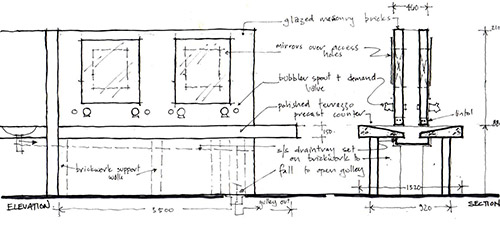 glazed masonry bricks
450
210
mirrors over access
holes
bubbler spout + demand
valve
polished terrazzo
precast counter
150
lintol
88
s/s draintray set
on brickwork to
fall to open golley
brickwork support
walls
golley out
1320
ELEVATION
3500
920
SECTION